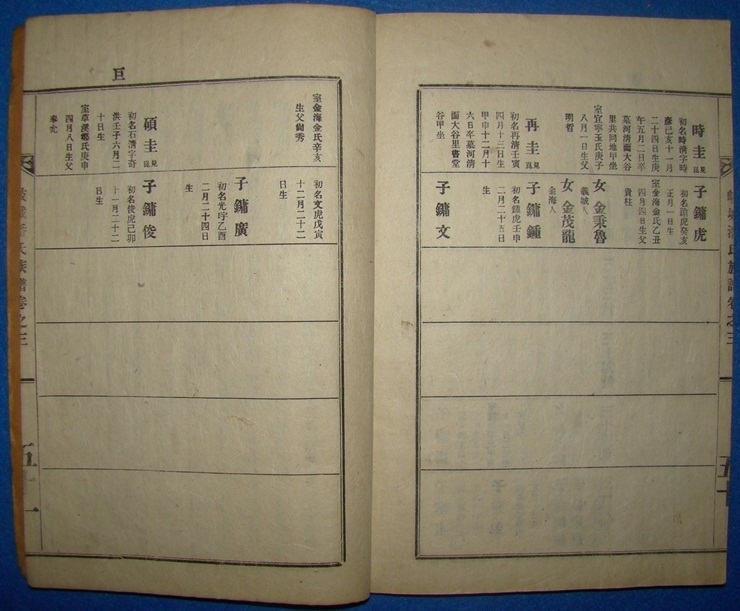 時圭
初名時清字時
彥己亥十一月
二十四日生庚
午五月二日卒
墓河清面大谷
里共同地甲坐
室宜寧玉氏庚子
八月一日生父
明哲
再圭
初名再清壬寅
四月十三日生
甲申十二月十
六日卒墓河清
面大谷里書堂
谷甲坐
子鏞虎
正月一日生
室金海金氏乙丑
四月四日生父
貴柱
女金秉魯
義城人
女金茂龍
金海人
子鏞鍾
初名鍾虎壬申
二月二十五日
生
子鏞文
五十
巨
室金海金氏辛亥
生父尚秀
碩圭
初名石清字奇
洪壬子六月二
十日生
室草溪鄭氏庚申
四月八日生父
奉允
初名文虎戊寅
十二月二十二
日生
子鏞廣
初名光呼乙酉
二月二十四日
生
子鏞俊
初名俊虎己卯
十一月二十二
日生
氏族譜卷之三
五十一